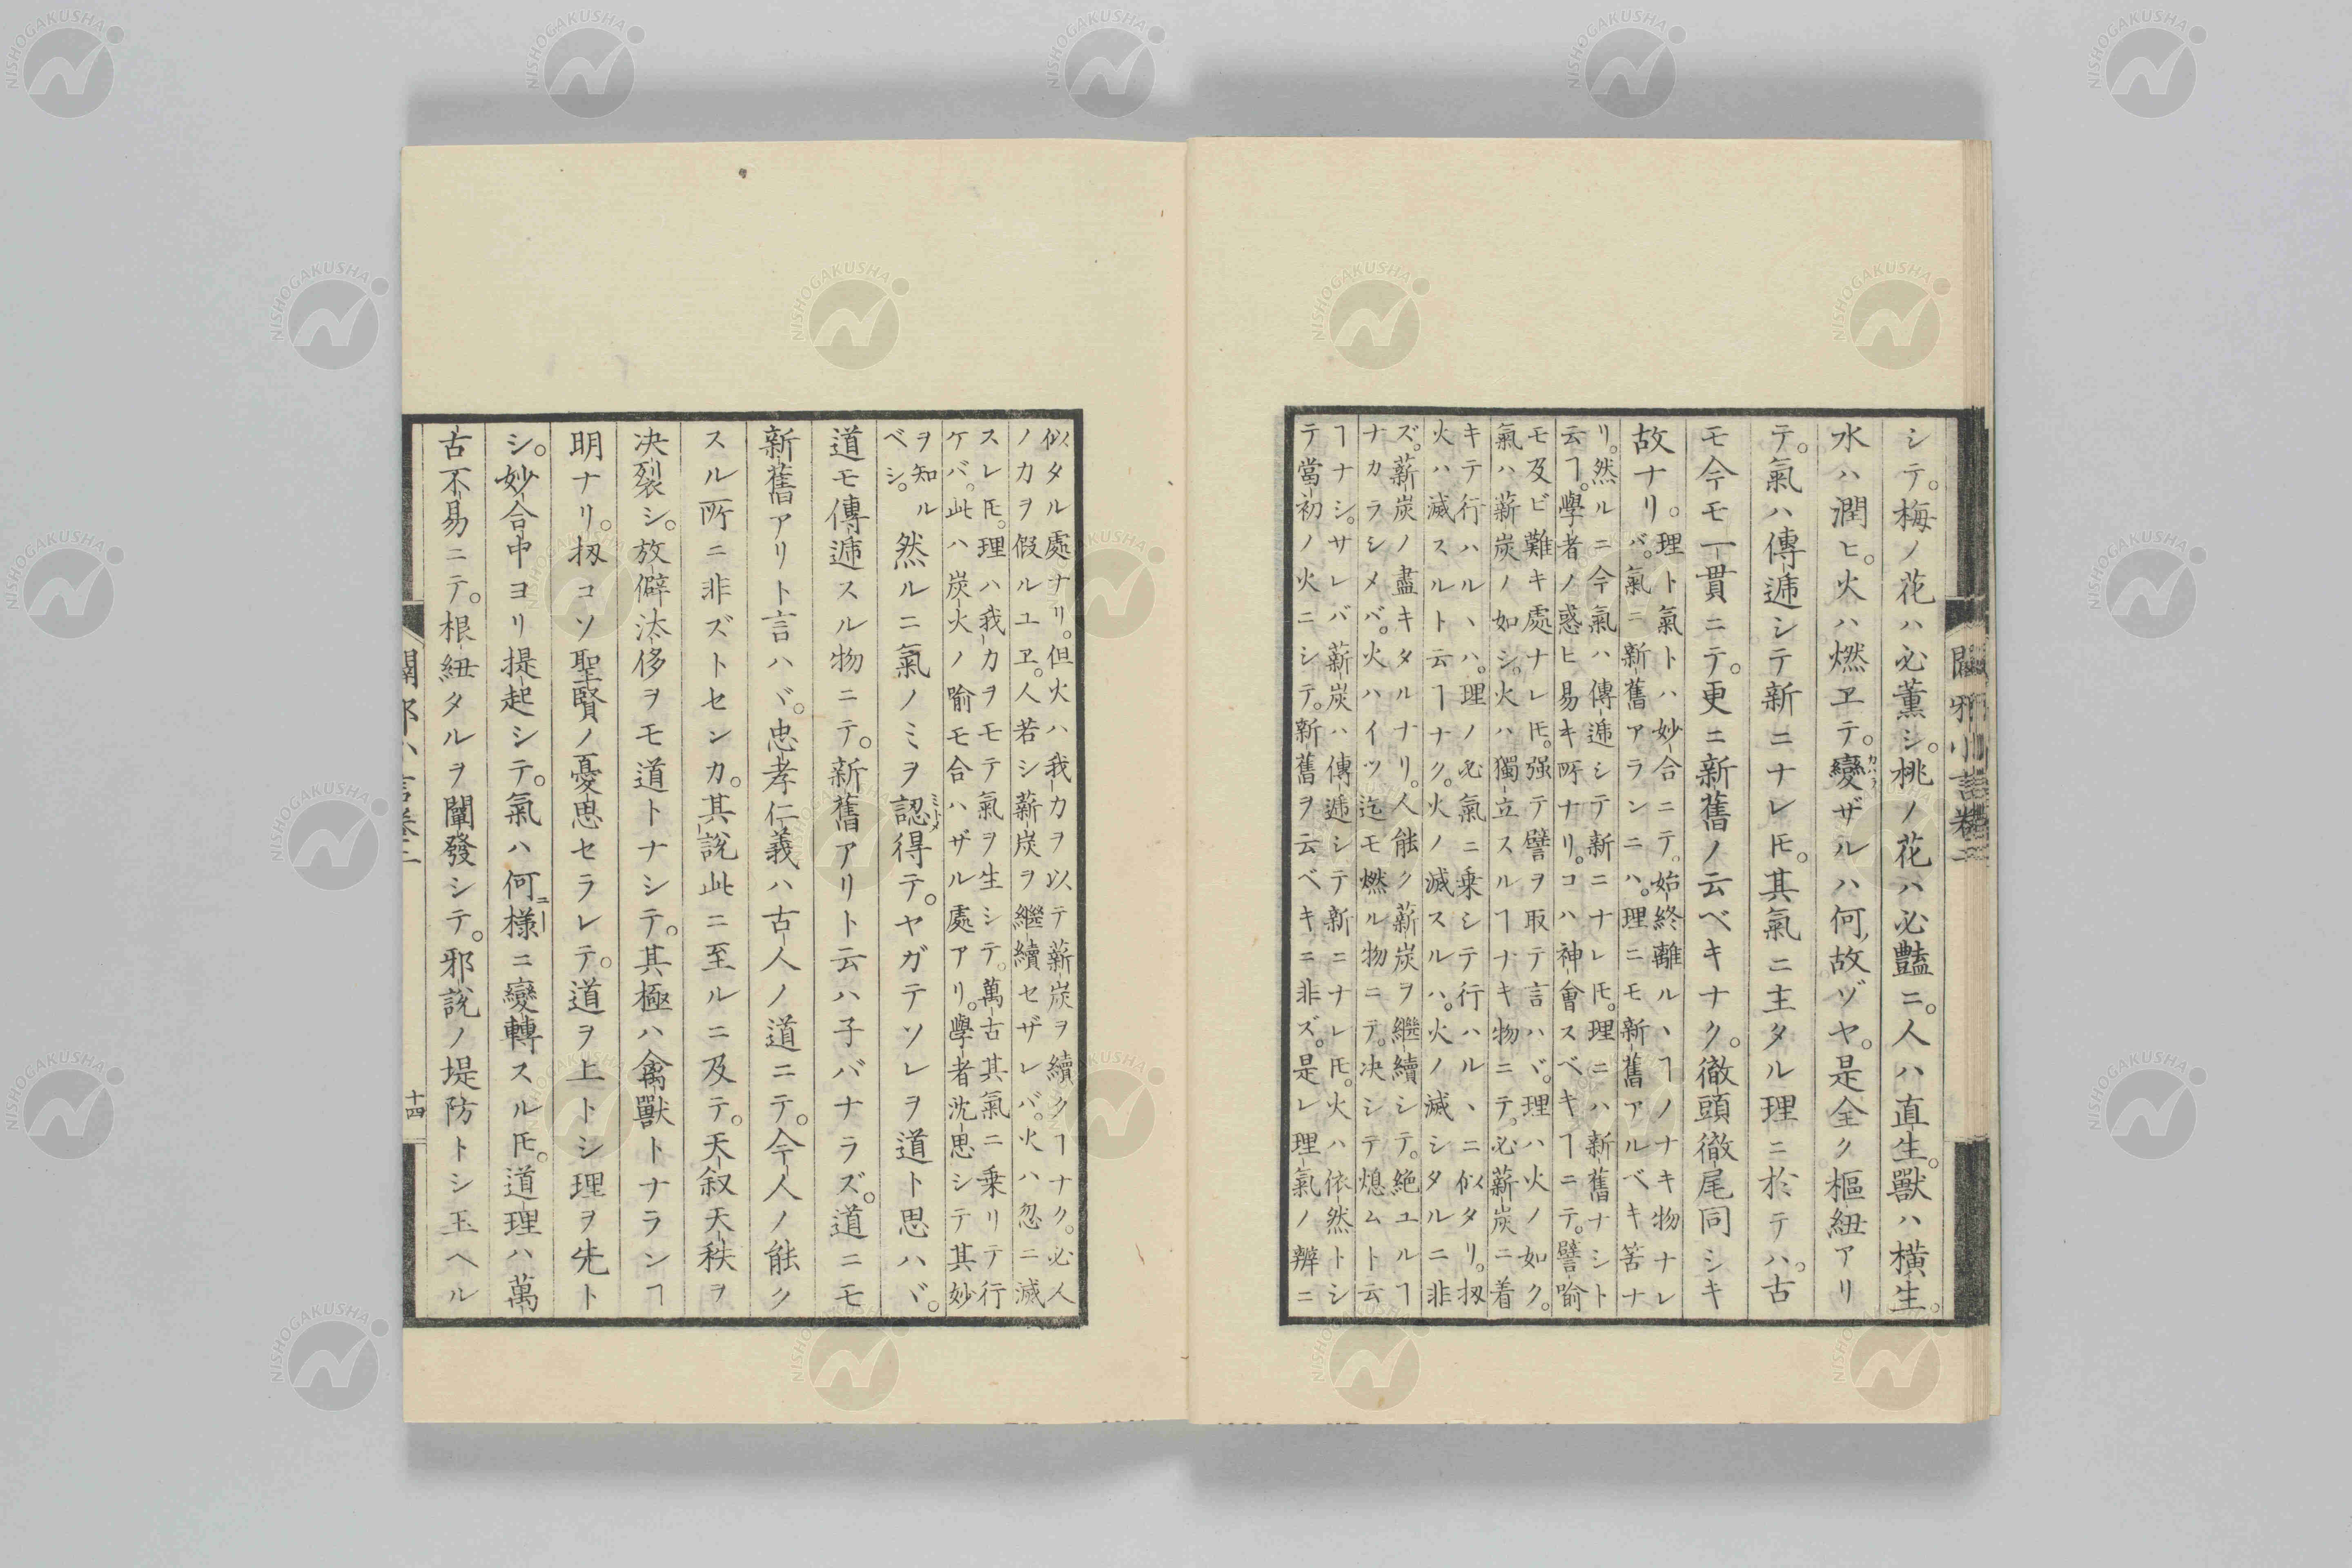 シテ。梅ノ花ハ必薫シ。桃ノ花ハ必豔ニ。人ハ直生。獸ハ橫生。
水ハ潤ヒ。火ハ燃ヱテ。變ザルハ何故ゾヤ。是全ク樞紐アリ
テ。氣ハ傳遞シテ新ニナレ𪜈。其氣ニ主タル理ニ於テハ。古
モ今モ一貫ニテ。更ニ新舊ノ云ベキナク。徹頭徹尾同シキ
故ナリ。理ト氣トハ妙合ニテ。始終離ルヽヿノナキ物ナレ
バ。氣ニ新舊アランニハ。理ニモ新舊アルベキ筈ナ
リ。然ルニ今氣ハ傳遞シテ新ニナレ𪜈。理ニハ新舊ナシト
云ヿ。學者ノ惑ヒ易キ所ナリ。コハ神會スベキヿニテ。譬喻
モ及ビ難キ處ナレ𪜈。强テ譬ヲ取テ言ハヾ。理ハ火ノ如ク。
氣ハ薪炭ノ如シ。火ハ獨立スルヿナキ物ニテ。必薪炭ニ着
キテ行ハルヽハ。理ノ必氣ニ乗シテ行ハルヽニ似タリ。扨
火ハ滅スルト云ヿナク。火ノ滅スルハ。火ノ滅シタルニ非
ズ。薪炭ノ盡キタルナリ。人能ク薪炭ヲ繼續シテ。絶ユルヿ
ナカラシメバ。火ハイツ迄モ燃ル物ニテ。决シテ熄ムト云
ヿナシ。サレバ薪炭ハ傳遞シテ新ニナレ𪜈。火ハ依然トシ
テ當初ノ火ニシテ。新舊ヲ云ベキニ非ズ。是レ理氣ノ辨ニ
似タル處ナリ。但火ハ我カヲ以テ薪炭ヲ續クヿナク。必人
ノカヲ假ルユヱ。人若シ薪炭ヲ繼續セザレバ。火ハ忽ニ滅
スレ𪜈。理ハ我カヲモテ氣ヲ生シテ。萬古其氣ニ乗リテ行
ケバ。此ハ炭火ノ喻モ合ハザル處アリ。學者沈思シテ其妙
ヲ知ル
ベシ。然ルニ氣ノミヲ認得テ。ヤガテソレヲ道ト思ハヾ。
道モ傳遞スル物ニテ。新舊アリト云ハ子バナラズ。道ニモ
新舊アリト言ハヾ。忠孝仁義ハ古人ノ道ニテ。今人ノ能ク
スル所ニ非ズトセンカ。其說此ニ至ルニ及テ。天叙天秩ヲ
决裂シ。放僻汰侈ヲモ道トナシテ。其極ハ禽獸トナランヿ
明ナリ。扨コソ聖賢ノ憂思セラレテ。道ヲ上トシ理ヲ先ト
シ。妙合中ヨリ提起シテ。氣ハ何樣ニ變轉スル𪜈。道理ハ萬
古不易ニテ。根紐タルヲ闡發シテ。邪說ノ堤防トシ玉ヘル
十四